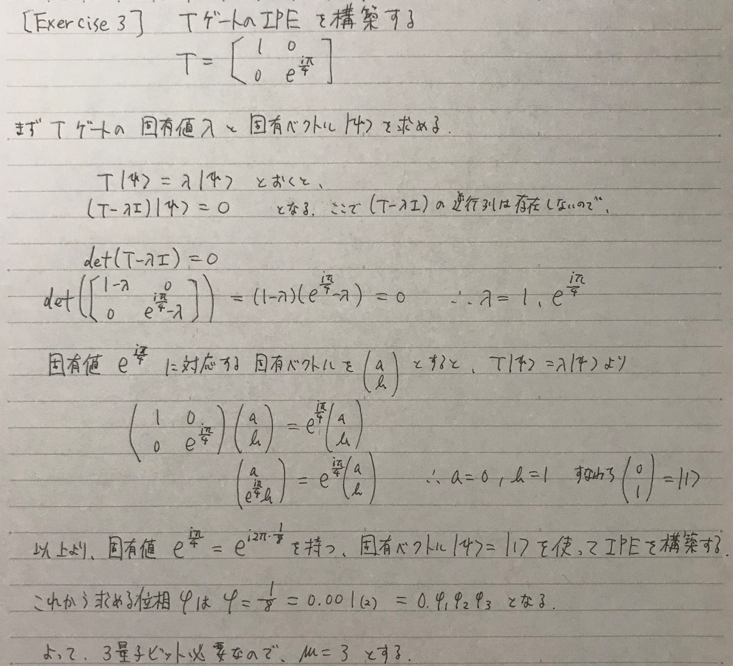 [Exercise 3] TゲートのIPEを構築する
T = [1 0
0 e^{iπ/4}]
まずTゲートの固有値λと固有ベクトル|ψ>を求める.
T|ψ> = λ|ψ> とおくと、
(T-λI)|ψ> = 0 となる. ここで(T-λI)の逆行列は存在しないので、
det(T-λI) = 0
det([1-λ 0
0 e^{iπ/4}-λ]) = (1-λ)(e^{iπ/4}-λ) = 0 ∴ λ = 1, e^{iπ/4}
固有値 e^{iπ/4} に対応する固有ベクトルを (a b) とすると、T|ψ> = λ|ψ> より
(1 0
0 e^{iπ/4}) (a b) = e^{iπ/4} (a b)
(a e^{iπ/4}b) = e^{iπ/4} (a b) ∴ a = 0, b = 1 すなわち (0 1) = |1>
以上より、固有値 e^{iπ/4} = e^{i2π・1/8} を持つ、固有ベクトル|ψ> = |1> を使ってIPEを構築する.
これから求める位相φは φ = 1/8 = 0.001(2) = 0.φ1φ2φ3 となる.
よって、3量子ビット必要なので、m = 3 とする.